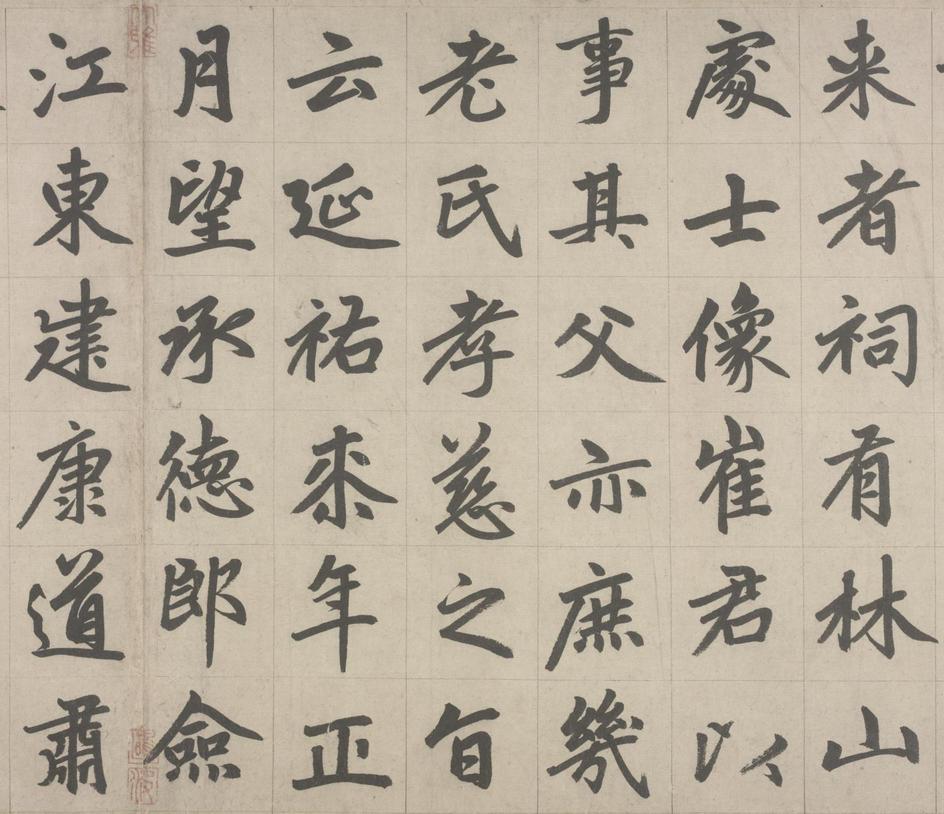 来者祠有林山
處士像崔君以
事其父亦庶幾
老氏孝慈之旨
云延祐来年正
月望承德郎僉
江東建康道肅